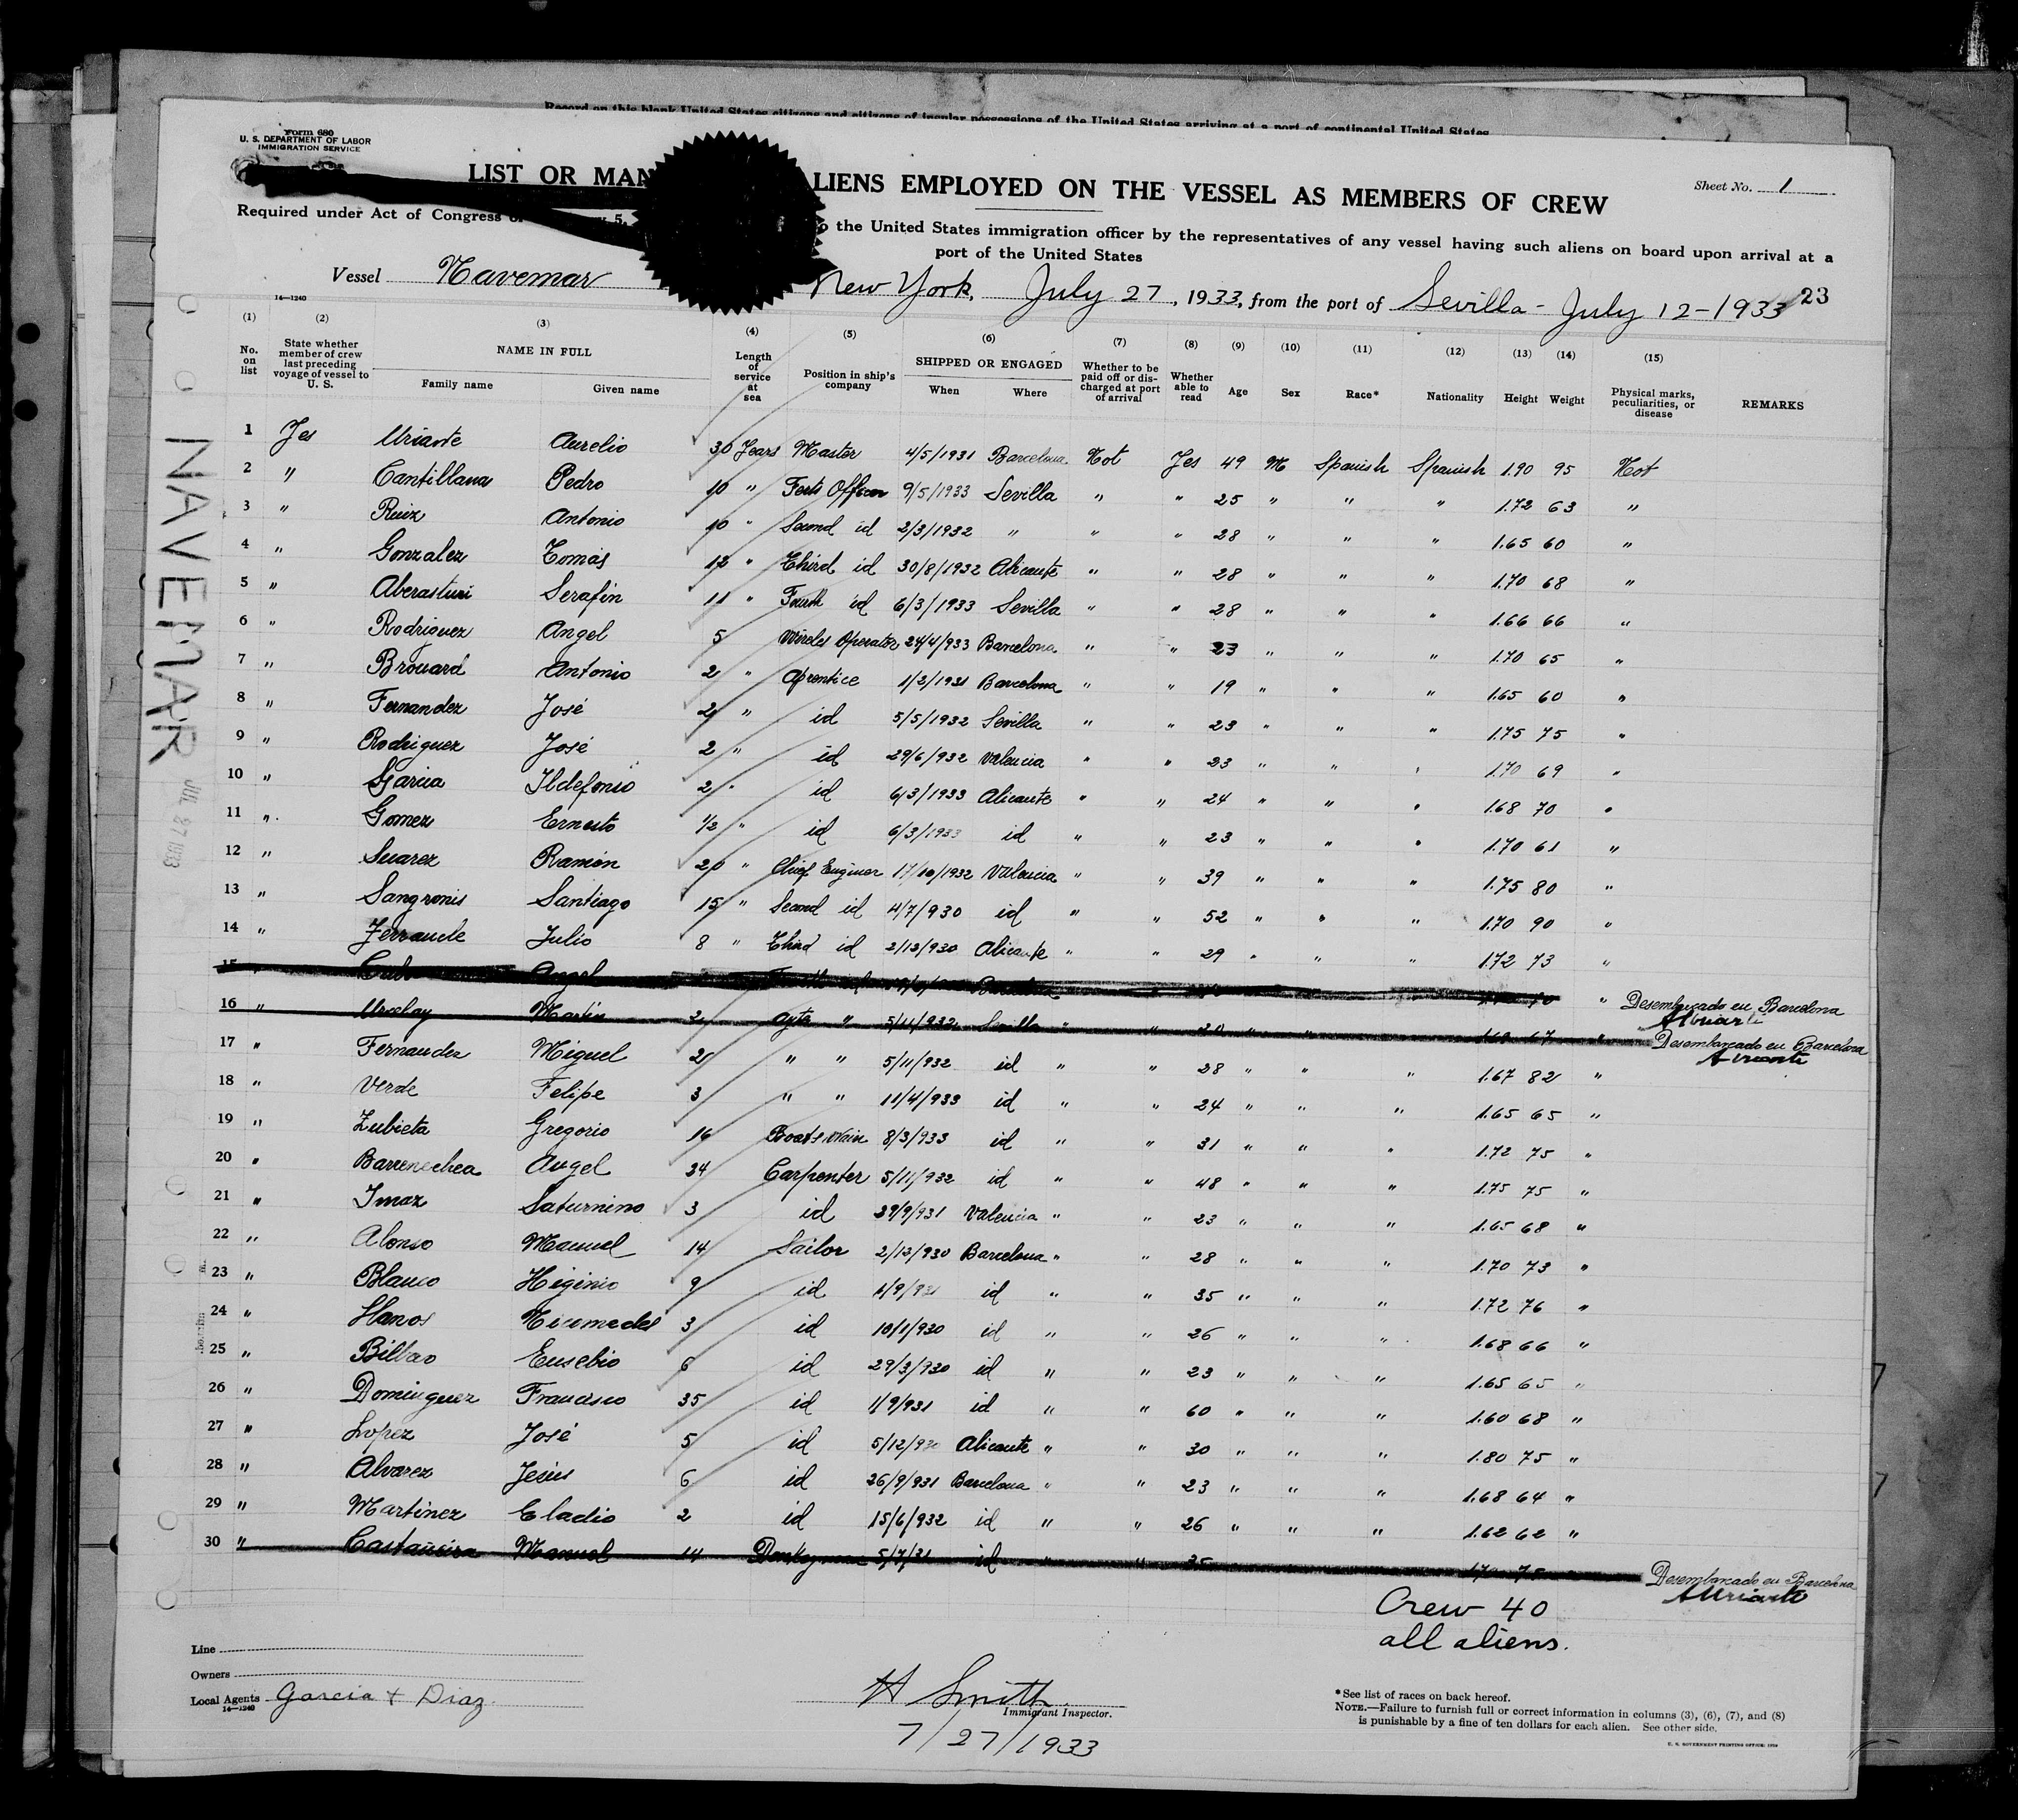 Record on this blank United States citizens and citizens of insular possessions of the United States arriving at a port of continental United States
Form 680
U. S. DEPARTMENT OF LABOR
IMMIGRATION SERVICE
LIST OR MAN LIENS EMPLOYED ON THE VESSEL AS MEMBERS OF CREW
Sheet No. 1
Required under Act of Congress y 5, o the United States immigration officer by the representatives of any vessel having such aliens on board upon arrival at a
port of the United States
Vessel Navemar New York, July 27, 1933, from the port of Sevilla - July 12-1933 23
14—1240
(1) (2) (3) (4) (5) (6) (7) (8) (9) (10) (11) (12) (13) (14) (15)
No. on list State whether member of crew last preceding voyage of vessel to U. S. NAME IN FULL Family name Given name Length of service at sea Position in ship's company SHIPPED OR ENGAGED When Where Whether to be paid off or discharged at port of arrival Whether able to read Age Sex Race* Nationality Height Weight Physical marks, peculiarities, or disease REMARKS
1 Yes Uriarte Aurelio 30 Years Master 4/5/1931 Barcelona Not Yes 49 M Spanish Spanish 1.90 95 Not
2 " Cantillana Pedro 10 " Officer 9/5/1933 Sevilla " " 25 " " " 1.72 63 "
3 " Ruiz Antonio 10 " Second id 2/3/1932 " " " 28 " " " 1.65 60 "
4 " Gonzalez Tomás 12 " Third id 30/8/1932 Alicante " " 28 " " " 1.70 68 "
5 " Aberasturi Serafin 11 " Fourth id 6/3/1933 Sevilla " " 28 " " " 1.66 66 "
6 " Rodriguez Angel 5 Wireles Operator 24/4/933 Barcelona " " 23 " " " 1.70 65 "
7 " Brouard Antonio 2 " Aprentice 1/2/1931 Barcelona " " 19 " " " 1.65 60 "
8 " Fernandez José 2 " id 5/5/1932 Sevilla " " 23 " " " 1.75 75 "
9 " Rodriguez José 2 " id 29/6/932 Valencia " " 23 " " " 1.70 69 "
10 " Garcia Ildefonso 2 " id 6/3/1933 Alicante " " 24 " " " 1.68 70 "
11 " Gomez Ernesto 1/2 " id 6/3/1933 id " " 23 " " " 1.70 61 "
12 " Suarez Ramón 20 " Chief Enginer 17/10/1932 Valencia " " 39 " " " 1.75 80 "
13 " Sangronis Santiago 15 " Second id 4/7/930 id " " 52 " " " 1.70 90 "
14 " Ferrande Julio 8 " Third id 2/12/930 Alicante " " 29 " " " 1.72 73 "
15 Angel Barcelona " Desembarcado en Barcelona
AUriarte
16 " Martin 2 Ayte " 5/11/932 Sevilla " " 20 " " 67 " Desembarcado en Barcelona
AUriarte
17 " Fernandez Miguel 2 " " 5/11/932 id " " 28 " " " 1.67 82 "
18 " Verde Felipe 3 " " 11/4/933 id " " 24 " " " 1.65 65 "
19 " Zubieta Gregorio 16 Boatswain 8/3/933 id " " 31 " " " 1.72 75 "
20 " Barrenechea Angel 24 Carpenter 5/11/932 id " " 48 " " " 1.75 75 "
21 " Imaz Saturnino 3 id 29/9/931 Valencia " " 23 " " " 1.65 68 "
22 " Alonso Manuel 14 Sailor 2/12/930 Barcelona " " 28 " " " 1.70 73 "
23 " Blanco Higinio 9 id 1/9/931 id " " 35 " " " 1.72 76 "
24 " Llanos Nicomedes 3 id 10/1/930 id " " 26 " " " 1.68 66 "
25 " Bilbao Eusebio 6 id 29/3/930 id " " 23 " " " 1.65 65 "
26 " Dominguez Francisco 35 id 1/9/931 id " " 60 " " " 1.60 68 "
27 " Lopez José 5 id 5/12/930 Alicante " " 30 " " " 1.80 75 "
28 " Alvarez Jesús 6 id 26/9/931 Barcelona " " 23 " " " 1.68 64 "
29 " Martinez Eladio 2 id 15/6/932 id " " 26 " " " 1.62 62 "
30 " Castañeira Manuel 14 Donkeyman 5/7/31 id " " 35 1.70 75 Desembarcado en Barcelona
AUriarte
NAVEMAR
JUL 27 1933
Crew 40
all aliens.
Line
Owners
Local Agents Garcia + Diaz.
14—1240
H Smith
Immigrant Inspector.
7/27/1933
*See list of races on back hereof.
NOTE.—Failure to furnish full or correct information in columns (3), (6), (7), and (8)
is punishable by a fine of ten dollars for each alien. See other side.
U. S. GOVERNMENT PRINTING OFFICE